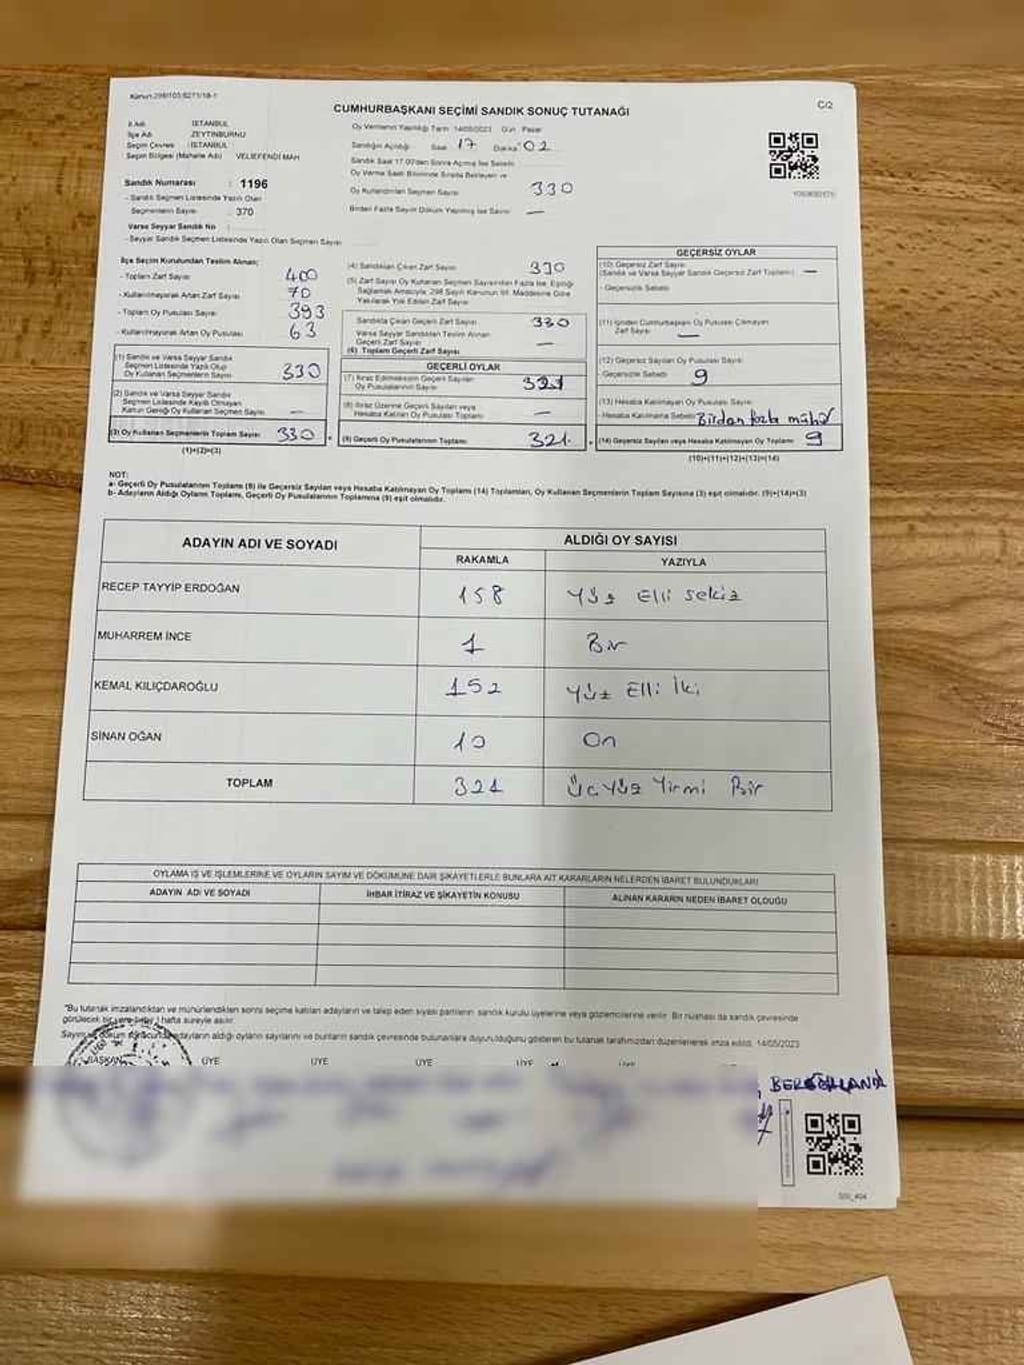 Kanun:298/103;6271/18-1
C/2
CUMHURBAŞKANI SEÇİMİ SANDIK SONUÇ TUTANAĞI
İl Adı : İSTANBUL
İlçe Adı : ZEYTİNBURNU
Seçim Çevresi : İSTANBUL
Seçim Bölgesi (Mahalle Adı) : VELİEFENDİ MAH
Sandık Numarası : 1196
- Sandık Seçmen Listesinde Yazılı Olan
Seçmenlerin Sayısı : 370
Varsa Seyyar Sandık No :
- Seyyar Sandık Seçmen Listesinde Yazılı Olan Seçmen Sayısı :
Oy Vermenin Yapıldığı Tarih : 14/05/2023 Gün : Pazar
Sandığın Açıldığı Saat : 17 Dakika : 02
Sandık Saat 17.00'den Sonra Açılmış İse Sebebi :
Oy Verme Saati Bitiminde Sırada Bekleyen ve
Oy Kullandırılan Seçmen Sayısı 330
Birden Fazla Sayım Döküm Yapılmış İse Sayısı : —
İlçe Seçim Kurulundan Teslim Alınan;
- Toplam Zarf Sayısı 400
- Kullanılmayarak Artan Zarf Sayısı 70
- Toplam Oy Pusulası Sayısı 393
- Kullanılmayarak Artan Oy Pusulası 63
(1) Sandık ve Varsa Seyyar Sandık
Seçmen Listesinde Yazılı Olup
Oy Kullanan Seçmenlerin Sayısı 330
(2) Sandık ve Varsa Seyyar Sandık
Seçmen Listesinde Kaydı Olmayan
Kanun Gereği Oy Kullanan Seçmen Sayısı —
(3) Oy Kullanan Seçmenlerin Toplam Sayısı 330
(1)+(2)=(3)
(4) Sandıktan Çıkan Zarf Sayısı 330
(5) Zarf Sayısı Oy Kullanan Seçmen Sayısından Fazla İse, Eşitliği
Sağlamak Amacıyla, 298 Sayılı Kanunun 98. Maddesine Göre
Yakılarak Yok Edilen Zarf Sayısı
Sandıkta Çıkan Geçerli Zarf Sayısı 330
Varsa Seyyar Sandıktan Teslim Alınan
Geçerli Zarf Sayısı —
(6) Toplam Geçerli Zarf Sayısı
GEÇERLİ OYLAR
(7) İtiraz Edilmeksizin Geçerli Sayılan
Oy Pusulalarının Sayısı 321
(8) İtiraz Üzerine Geçerli Sayılan veya
Hesaba Katılan Oy Pusulası Toplamı —
(9) Geçerli Oy Pusulalarının Toplamı 321
GEÇERSİZ OYLAR
(10) Geçersiz Zarf Sayısı
(Sandık ve Varsa Seyyar Sandık Geçersiz Zarf Toplamı) —
- Geçersizlik Sebebi :
(11) İçinden Cumhurbaşkanı Oy Pusulası Çıkmayan
Zarf Sayısı —
(12) Geçersiz Sayılan Oy Pusulası Sayısı
- Geçersizlik Sebebi : 9
(13) Hesaba Katılmayan Oy Pusulası Sayısı
- Hesaba Katılmama Sebebi : Birdan fazla mühür
(14) Geçersiz Sayılan veya Hesaba Katılmayan Oy Toplamı 9
(10)+(11)+(12)+(13)=(14)
NOT:
a- Geçerli Oy Pusulalarının Toplamı (9) ile Geçersiz Sayılan veya Hesaba Katılmayan Oy Toplamı (14) Toplamları, Oy Kullanan Seçmenlerin Toplam Sayısına (3) eşit olmalıdır. (9)+(14)=(3)
b- Adayların Aldığı Oyların Toplamı, Geçerli Oy Pusulalarının Toplamına (9) eşit olmalıdır.
ADAYIN ADI VE SOYADI
ALDIĞI OY SAYISI
RAKAMLA YAZIYLA
RECEP TAYYİP ERDOĞAN 158 Yüz Elli Sekiz
MUHARREM İNCE 1 Bir
KEMAL KILIÇDAROĞLU 152 Yüz Elli İki
SİNAN OĞAN 10 On
TOPLAM 321 Üçyüz Yirmi Bir
OYLAMA İŞ VE İŞLEMLERİNE VE OYLARIN SAYIM VE DÖKÜMÜNE DAİR ŞİKAYETLERLE BUNLARA AİT KARARLARIN NELERDEN İBARET BULUNDUKLARI
ADAYIN ADI VE SOYADI İHBAR İTİRAZ VE ŞİKAYETİN KONUSU ALINAN KARARIN NEDEN İBARET OLDUĞU
"Bu tutanak imzalandıktan ve mühürlendikten sonra seçime katılan adayların ve talep eden siyasi partilerin sandık kurulu üyelerine veya gözlemcilerine verilir. Bir nüshası da sandık çevresinde
görülecek bir yere 1 hafta süreyle asılır.
adayların aldığı oyların sayılarını ve bunların sandık çevresinde bulunanlara duyurulduğunu gösteren bu tutanak tarafımızdan düzenlenerek imza edildi. 14/05/2023
BAŞKAN ÜYE ÜYE ÜYE ÜYE